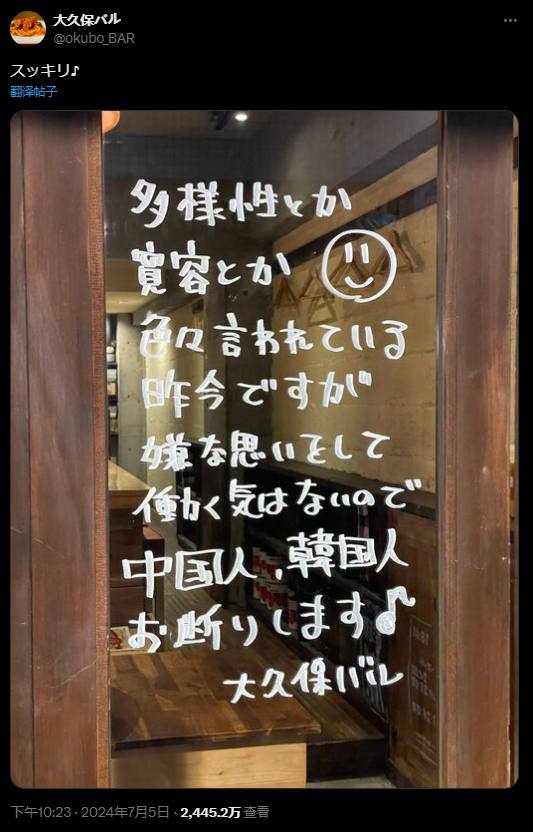 大久保バル
@okubo_BAR
スッキリ♪
翻泽帖子
多様性とか
寛容とか
色々言われている
昨今ですが
嫌な思いをして
働く気はないので
中国人、韓国人
お断りします♪
大久保バル
下午10:23 · 2024年7月5日 · 2,445.2万 查看